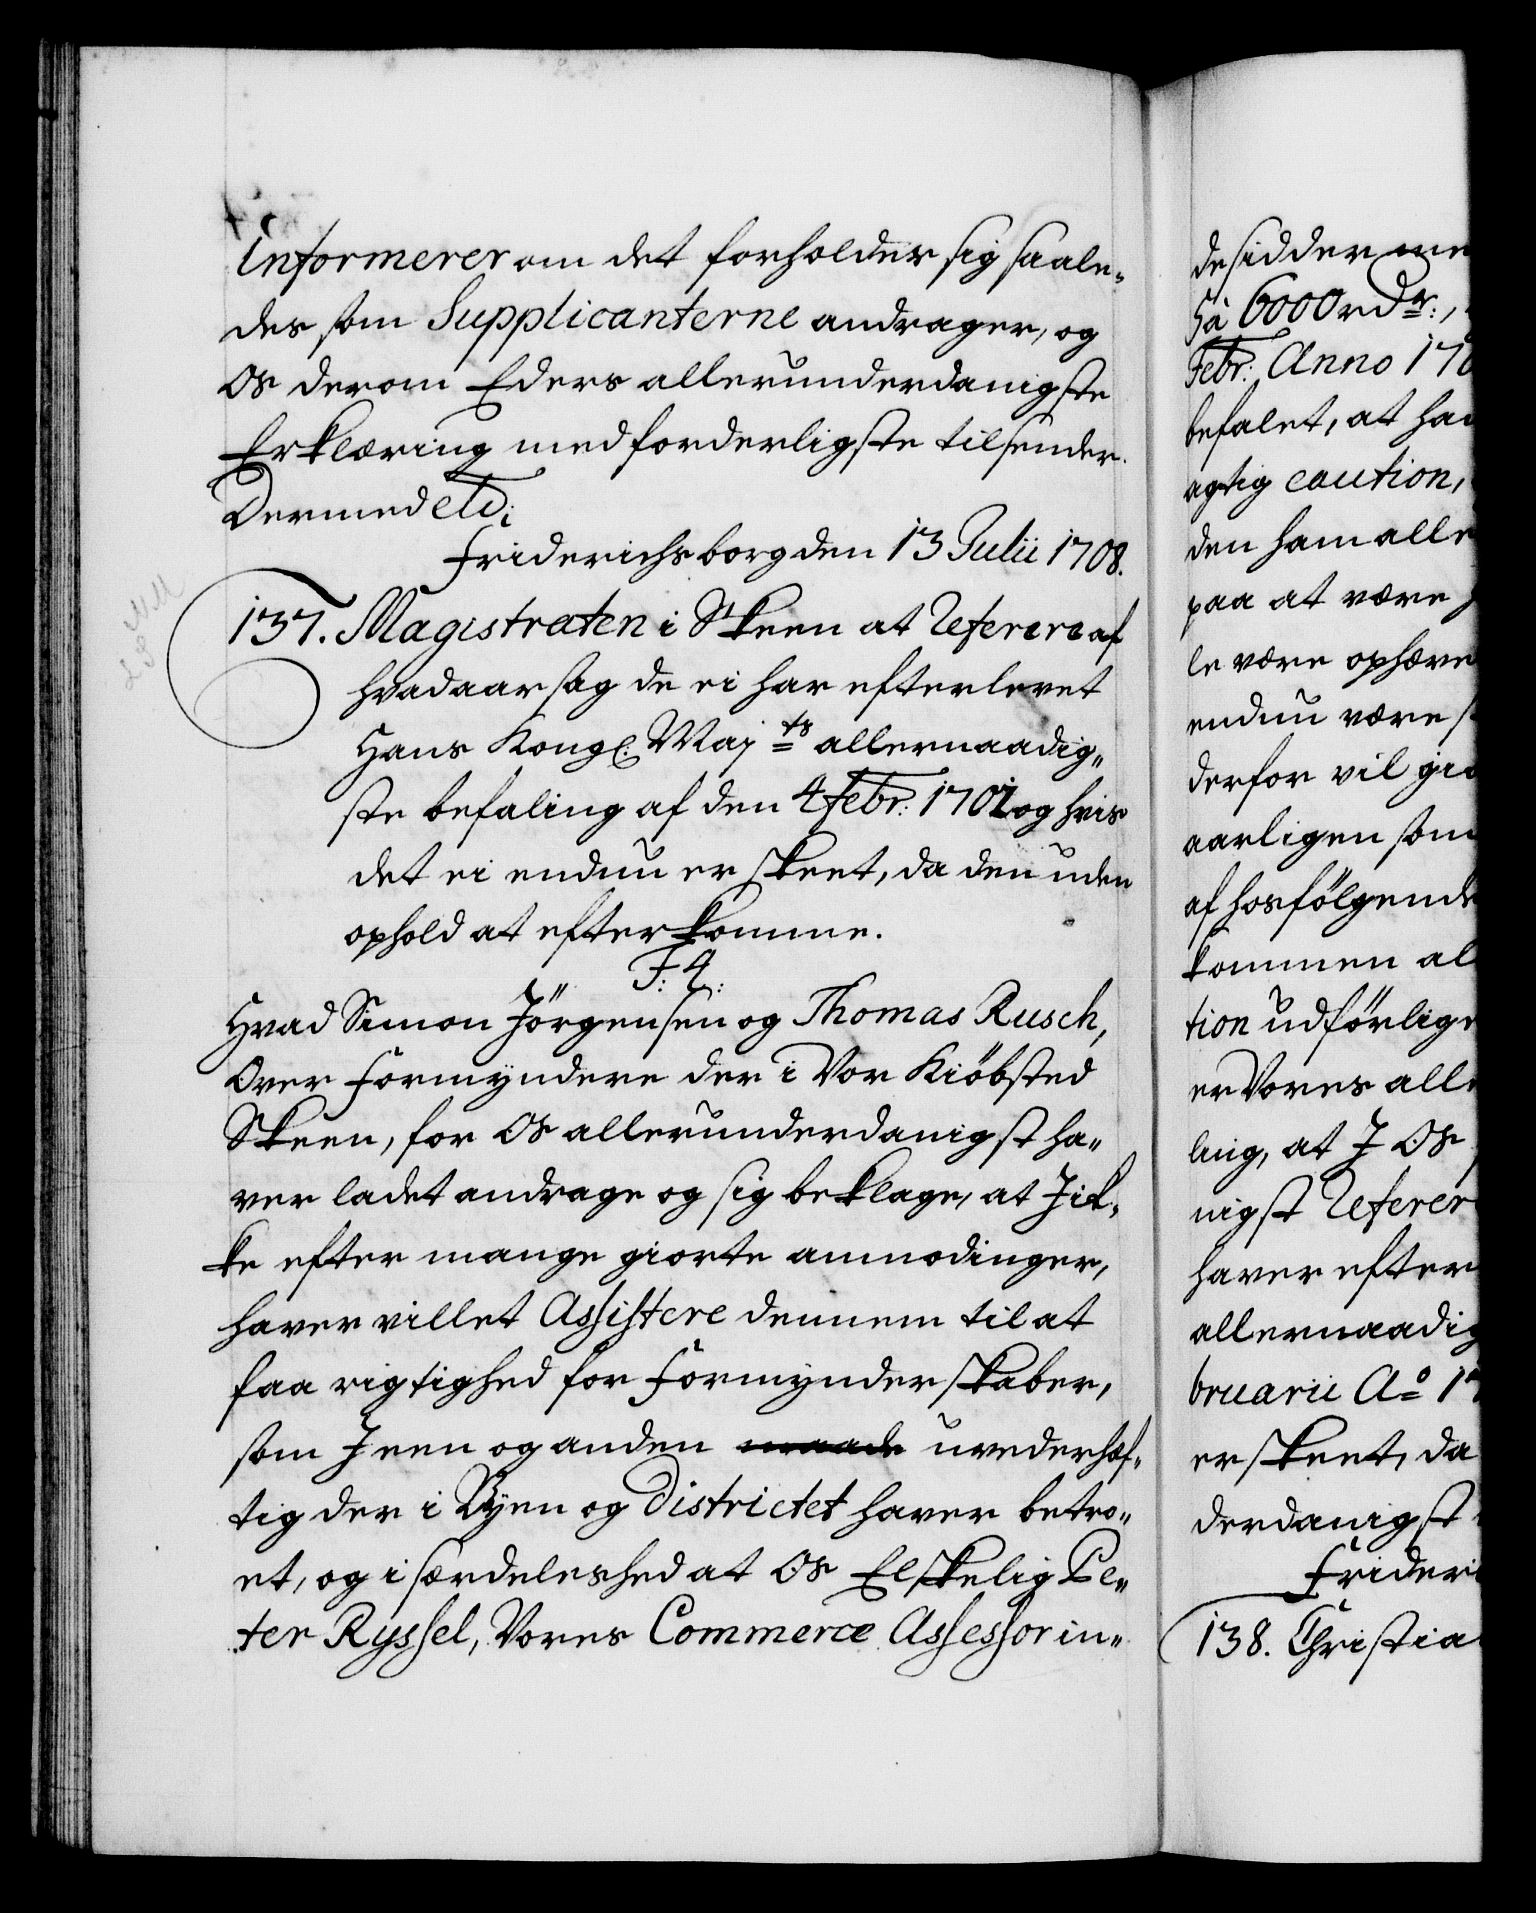 informerer om det forholder sig saale„
des som Supplicanterne andrager, og
Os derom Eders allerunderdanigste
Erklæring med forderligste tilsender.
Dermed etc:
Friderichsborg den 13 Julii 1708.
137. Magistraten i Skeen at referere af
hvad aarsag de ei har efterlevet
Hans Kongl: Maj:ts allernaadig„
ste befaling af den 4 Febr: 1701 og hvis
det ei endnu er skeet, da den uden
ophold at efterkomme.
F: 4:
Hvad Simon Jörgensen og Thomas Rusch,
Over Formyndere der i Vor Kiöbsted
Skeen, for Os allerunderdanigst ha„
ver ladet andrage og sig beklage, at J ik„
ke efter mange giorte anmodinger,
haver villet Assistere dennem til at
faa rigtighed for Formynderskaber,
som J een og anden maade uvederhæf„
tig der i Byen og Districtet haver betro„
et, og i særdeleshed at Os Elskelig Pe„
ter Ryssel, Vores Commerce Assessor in„
de sidder me
på 6000 rdr:,
Febr: Anno 170
befalet, at han
agtig caution,
den ham alle
paa at være
le være ophæve
endnu være s
derfor vil gio
aarligen som
af hosfölgende
kommen al
tion udförlige
er Vores alle
ling, at J Os
nigst referer
haver efter
allernaadig
bruarii Ao 17
er skeet, da
derdanigst
Frideri
138. Christia